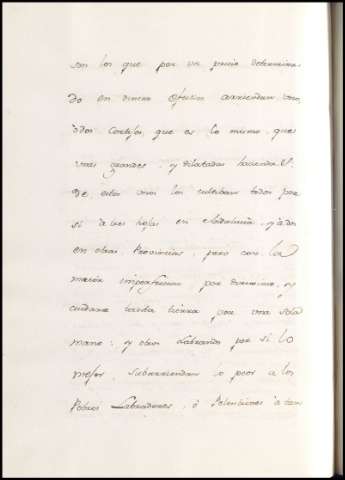 son los que por un precio determina
do en dinero efectivo arriendan uno,
o dos Cortijos, que es lo mismo, que
unas grandes, y dilatadas haciendas.
De estos unos los cultiban todos por
si a tres hojas en Andalucia, y a dos
en otras Provincias, pero con la
maior imperfeccion por
cuidarse tanta tierra por una sola
mano: y otros Labrando por si lo
mejor, subarriendan lo peor a los
Pobres Labradores, ò Pelentrines à tan